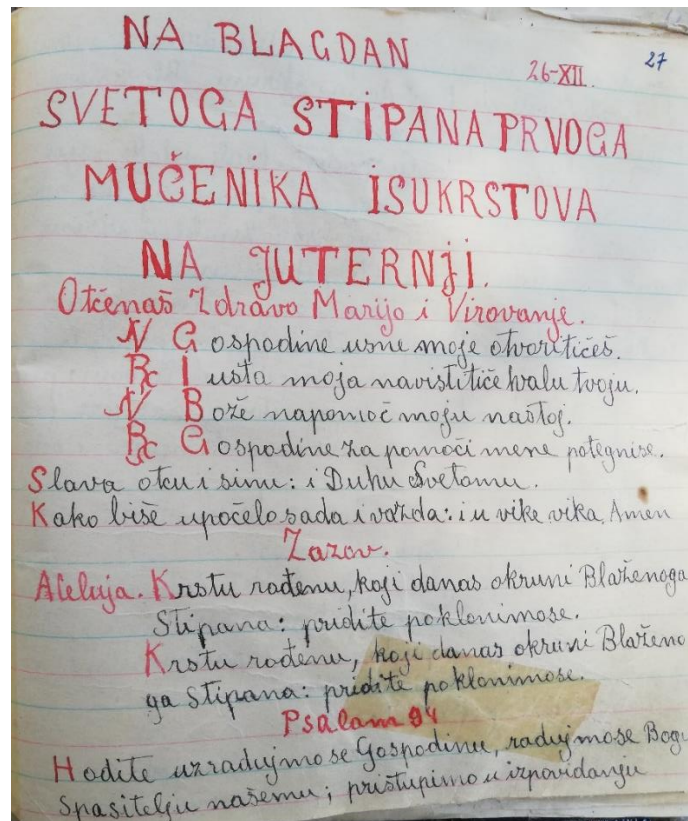 NA BLAGDAN
26-XII.
27
SVETOGA STIPANA PRVOGA
MUČENIKA ISUKRSTOVA
NA JUTERNJI.
Otčenaš Zdravo Marijo i Virovanje.
V Gospodine usne moje otvoritićeš.
R I usta moja navistitiće hvalu tvoju.
V Bože napomoć moju nastoj.
R Gospodine za pomoći mene potegnise.
Slava otcu i sinu: i Duhu Svetomu.
Kako biše upočelo sada i vazda: i u vike vika, Amen
Zazov.
Aleluja. Krstu rođenu, koji danas okruni Blaženoga
Stipana: pridite poklonimose.
Krstu rođenu, koji danas okruni Blaženo
ga Stipana: pridite poklonimose.
Psalam 94
Hodite uzradujmo se Gospodinu, radujmose Bogu
Spasitelju našemu; pristupimo u izpovidanju